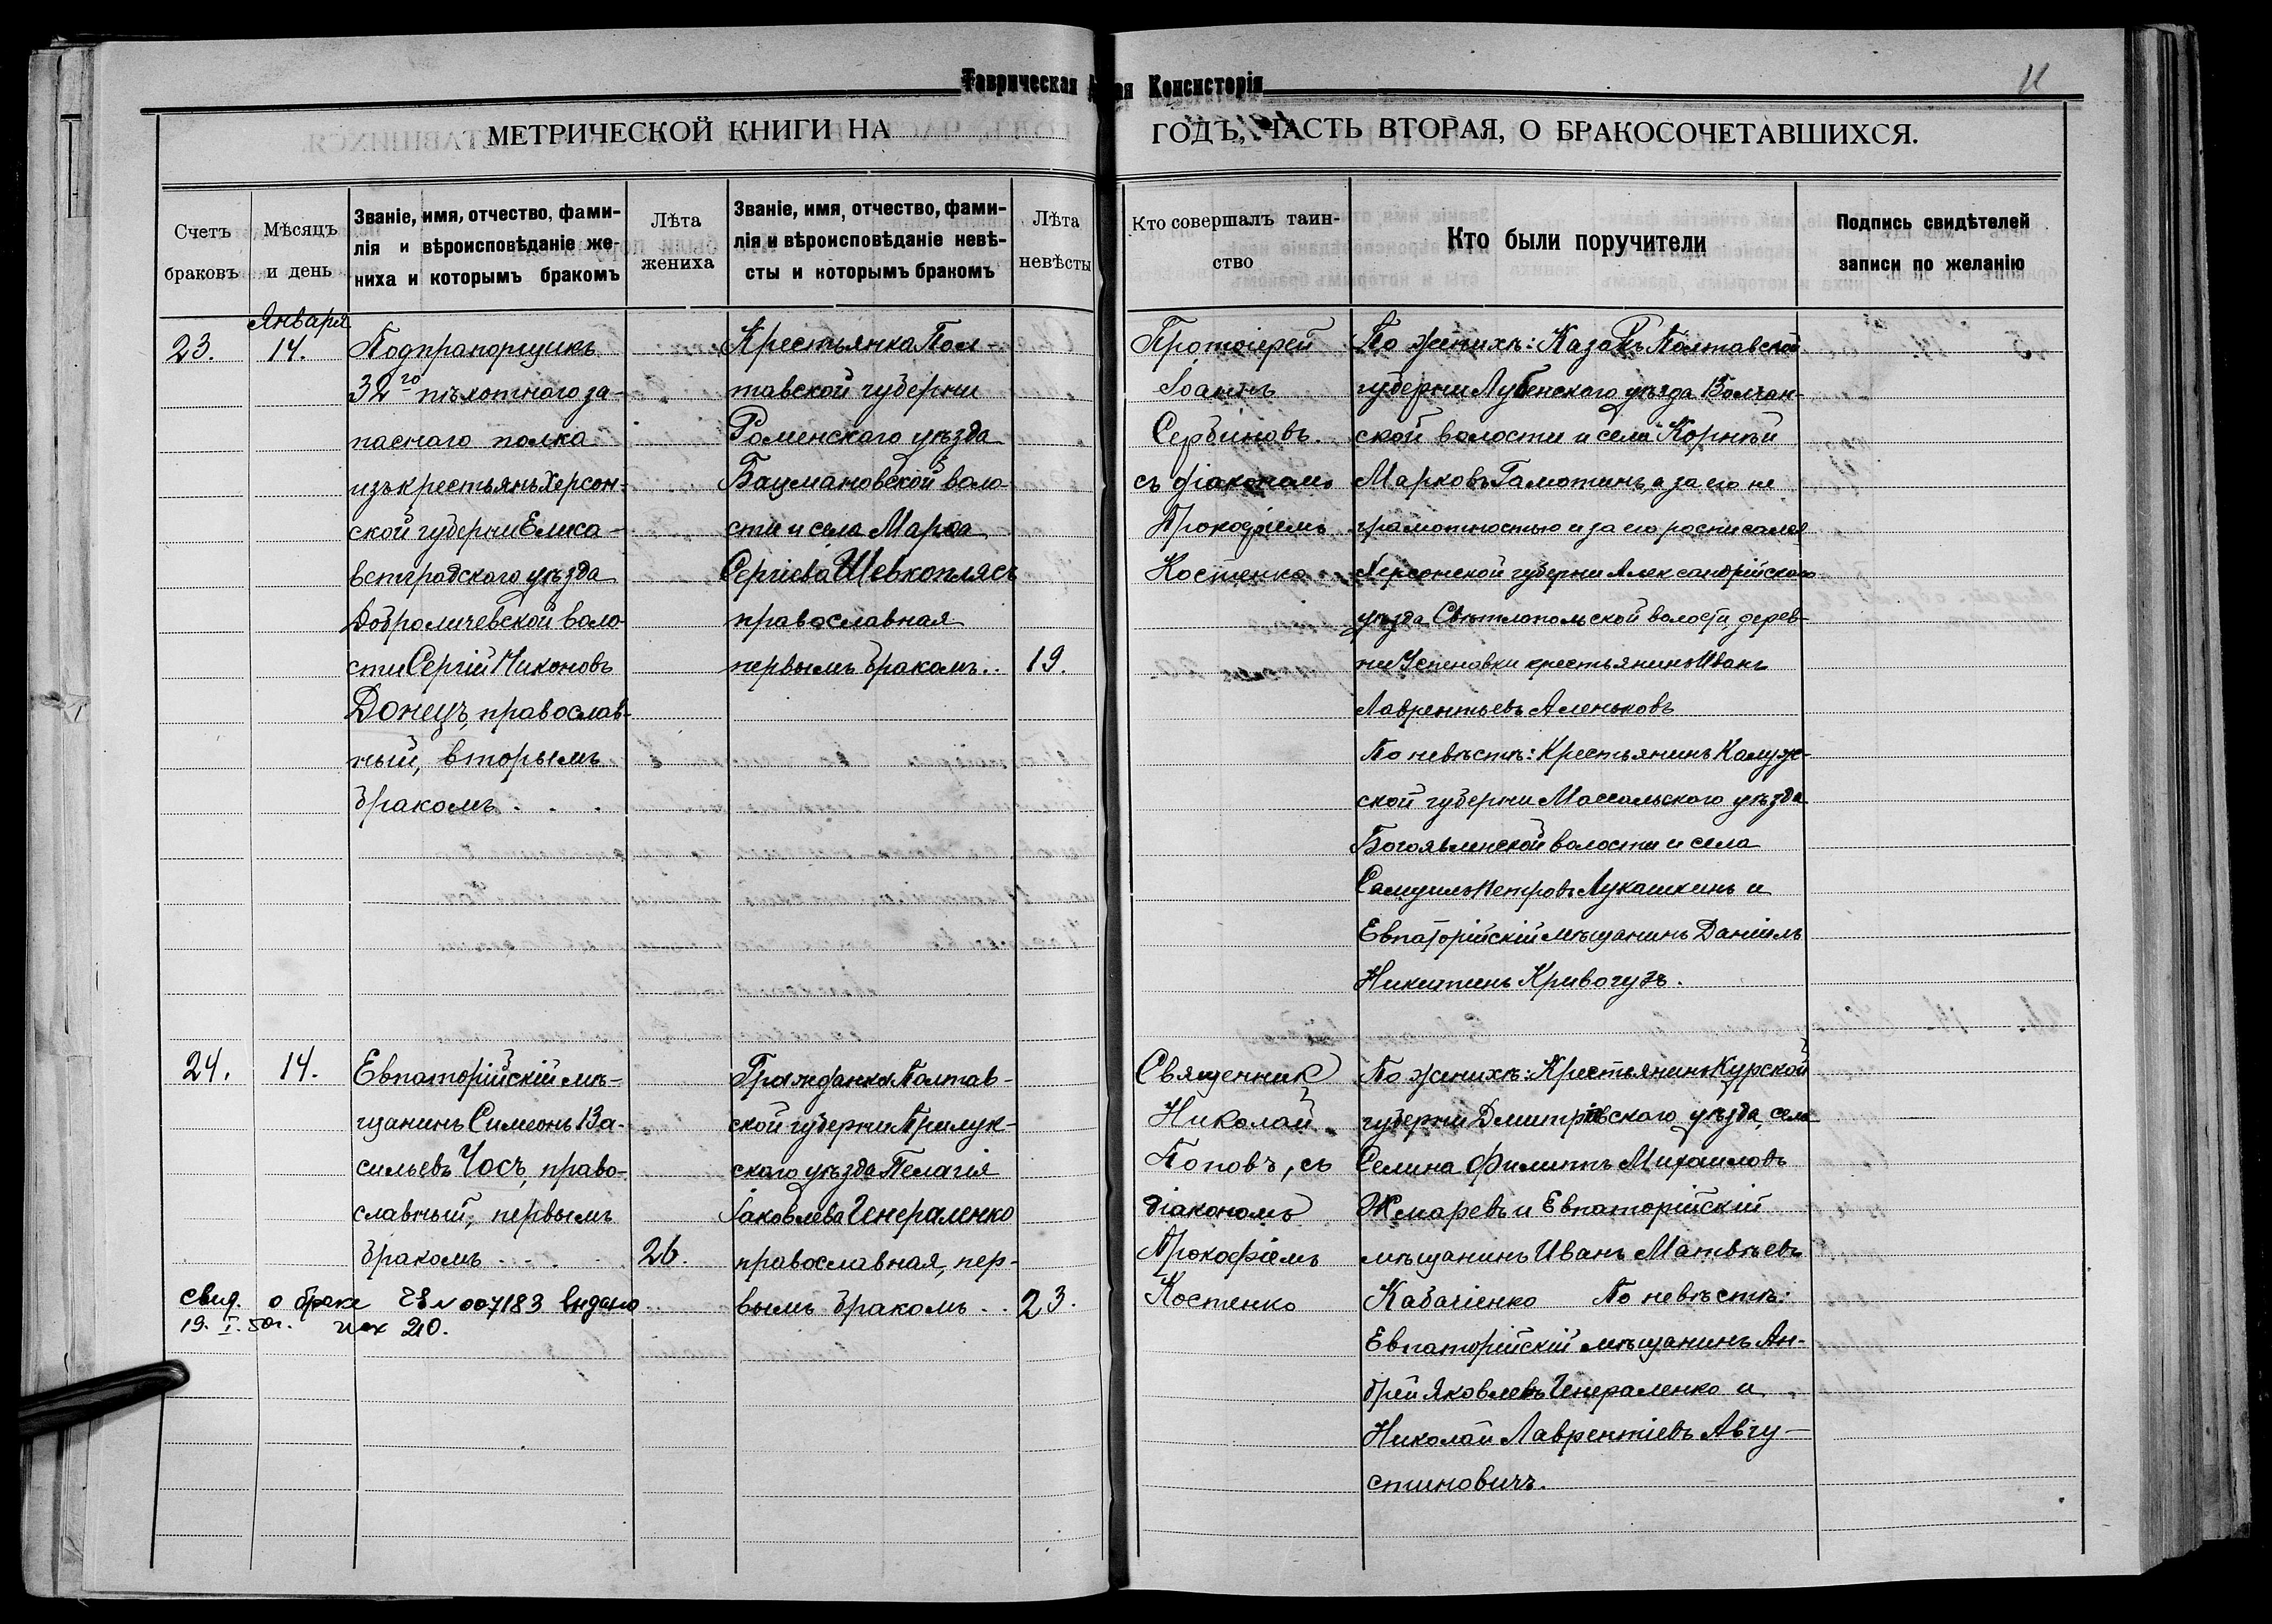 Таврическая ая Консисторія
11
МЕТРИЧЕСКОЙ КНИГИ НА ГОДЪ, ЧАСТЬ ВТОРАЯ, О БРАКОСОЧЕТАВШИХСЯ.
Счетъ браковъ
Мѣсяцъ и день
Званіе, имя, отчество, фами-
лія и вѣроисповѣданіе же-
ниха и которымъ бракомъ
Лѣта жениха
Званіе, имя, отчество, фами-
лія и вѣроисповѣданіе невѣ-
сты и которымъ бракомъ
Лѣта невѣсты
Кто совершалъ таин-
ство
Кто были поручители
Подпись свидѣтелей
записи по желанію
23.
Января
14.
Подпрапорщикъ
32го пѣхотнаго за-
паснаго полка
изъ крестьянъ Херсон-
ской губерни Елиса-
ветградскаго уѣзда
Доброличевской воло-
сти Сергій Никоновъ
Донецъ, православ-
ный, вторымъ
бракомъ . . .
Крестьянка Пол-
тавской губерни
Роменскаго уѣзда
Бацмановской воло-
сти и села Марѳа
Сергіева Шевкоплясъ
православная
первымъ бракомъ . . 19.
Протоіерей
Іоаннъ
Сербиновъ
съ діакономъ
Прокофіемъ
Костенко
По женихѣ: Казакъ Полтавской
губерни Лубенскаго уѣзда Волчан-
ской волости и села Корнѣй
Марковъ Гамотинъ, а за его не
грамотностью и за его росписался
Херсонской губерни Александрійскаго
уѣзда Свѣтлопольской волости, дерев-
ни Успеновки крестьянинъ Иванъ
Лаврентьевъ Аленьковъ
По невѣстѣ: Крестьянинъ Калуж-
ской губерни Масальскаго уѣзда
Богоявленской волости и села
Самуилъ Петровъ Лукашкинъ и
Евпаторійскій мѣщанинъ Даніилъ
Никитинъ Кривогузъ.
24.
14.
Евпаторійскій мѣ-
щанинъ Симеонъ Ва-
сильевъ Чосъ, право-
славный, первымъ
бракомъ . . . 26.
свид. о браке ГЕ N 007183 выдано
19. I. 50г. исх 210.
Гражданка Полтав-
ской губерни Прилук-
скаго уѣзда Пелагія
Іаковлева Генераленко
православная, пер-
вымъ бракомъ . . 23.
Священник
Николай
Поповъ, съ
діакономъ
Прокофіемъ
Костенко
По женихѣ: Крестьянинъ Курской
губерни Дмитріевскаго уѣзда, села
Селина Филиппъ Михаиловъ
Жмаревъ и Евпаторійскій
мѣщанинъ Иванъ Матвѣевъ
Кабаченко По невѣстѣ:
Евпаторійскій мѣщанинъ Ан-
дрей Яковлевъ Генераленко и
Николай Лаврентіевъ Авгу-
стиновичъ.